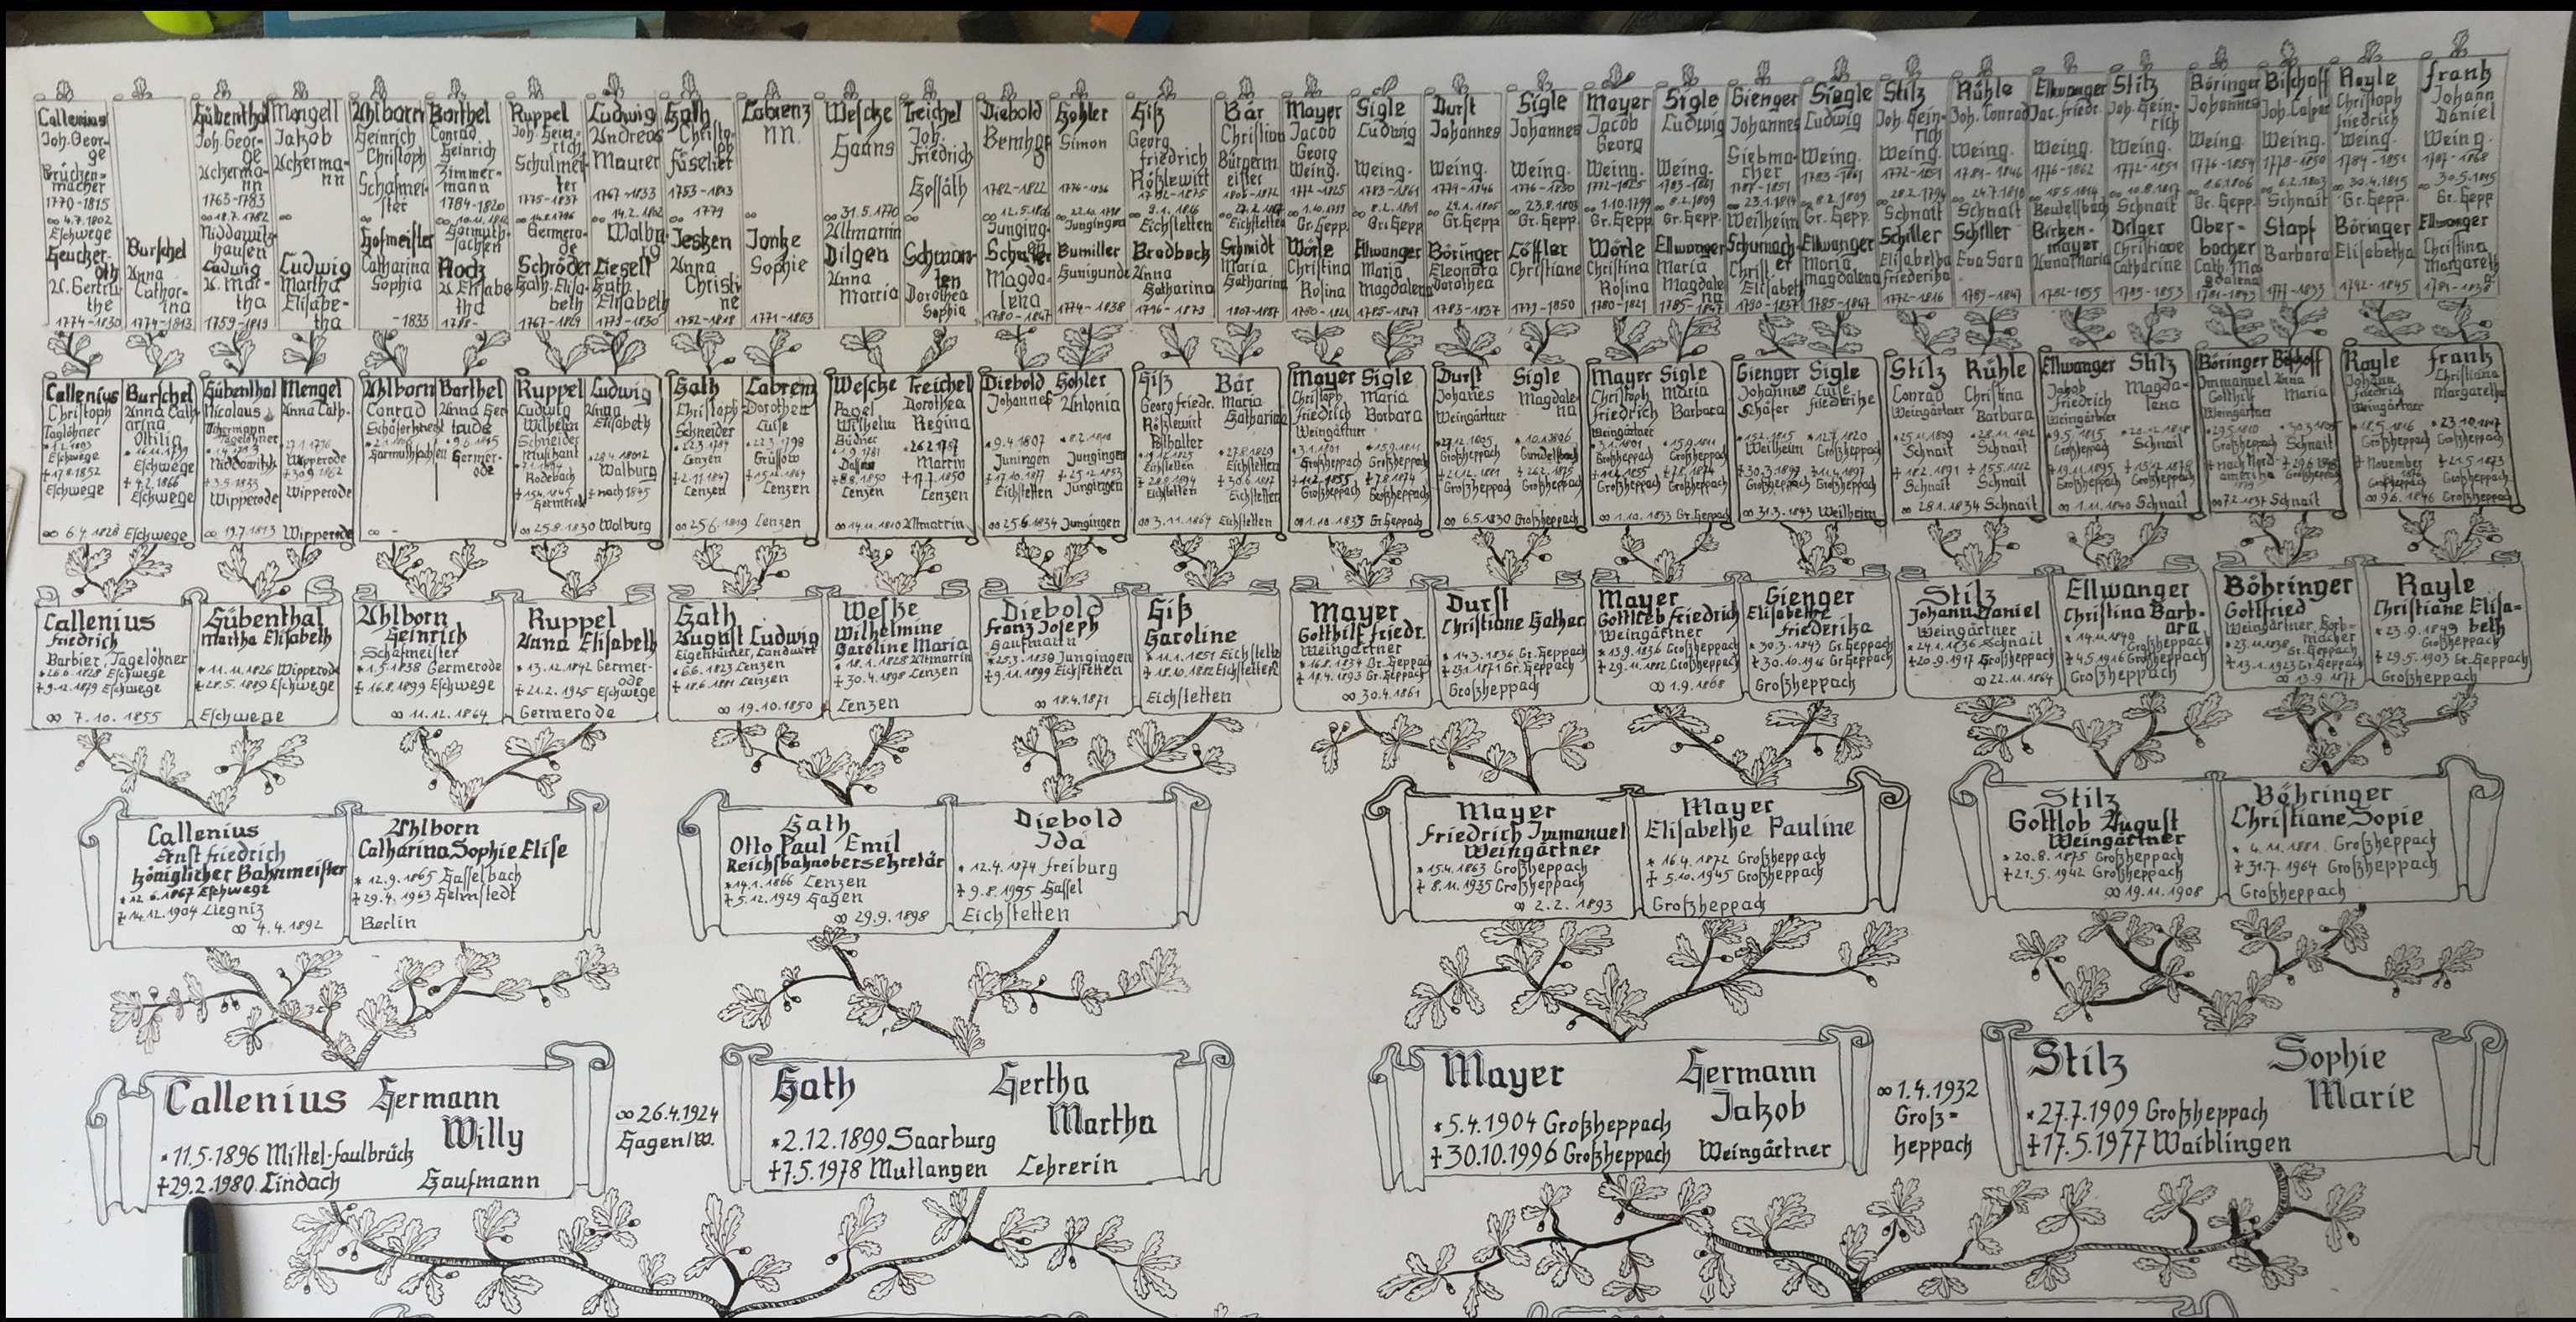 Callenius
Joh. Geor-
ge
Brücken-
macher
1770-1815
∞ 4.7.1802
Eschwege
Geucker-
oth
A. Gertru
the
1774-1830
Burschel
Anna
Cathar-
ina
1774-1813
Hübenthal
Joh. Geor-
ge
Ackerma-
nn
1763-1783
∞ 18.7.1782
Niddawitz-
hausen
Ludwig
A. Mar-
tha
1759-1819
Mengell
Jakob
Ackerma-
nn
∞
Ludwig
Martha
Elisabe-
tha
Ahlborn
Heinrich
Christoph
Schafmei-
ster
∞
Hofmeister
Catharina
Sophia
-1833
Barthel
Conrad
Heinrich
Zimmer-
mann
1784-1820
Hock
A. Elisabe
tha
1788-
Ruppel
Joh. Hein-
rich
Schulmei-
ster
1775-1837
Germero-
de
Schröder
Cath. Elisa-
beth
1767-1829
Ludwig
Andreas
Maurer
1767-1833
∞ 14.2.1802
Walbu-
rg
Liesell
Cath.
Elisabeth
1779-1830
Hath
Christo-
ph
Füselier
1753-1813
∞ 1779
Jesken
Anna
Christi-
ne
1752-1818
Labrenz
nn.
∞
Janke
Sophie
1771-1853
Wescke
Hanns
∞ 31.5.1770
Altmarrin
Dilgen
Anna
Marria
Treichel
Joh.
Friedrich
Hossäth
∞
Schwan-
ten
Dorothea
Sophia
Diebold
Bernhar
1782-1822
Junging-
Magda-
lena
1780-1847
Hohler
Simon
1776-1836
Jungingen
Bumiller
Hunigunde
1774-1838
Giß
Georg
Friedrich
Rößlewirt
Eichstetten
Brodbeck
Anna
Catharina
1796-1879
Bär
Christian
Bürgerm
eister
Schmidt
Maria
Catharina
1807-1887
Mayer
Jacob
Georg
Weing.
1772-1825
∞ 1.10.1799
Gr. Gepp.
Wörle
Christina
Rosina
1780-1821
Sigle
Ludwig
Weing.
1783-1861
∞ 8.2.1809
Gr. Gepp.
Ellwanger
Maria
Magdalena
1785-1847
Durst
Johannes
Weing.
1771-1846
∞ 29.1.1805
Gr. Gepp.
Böringer
Eleonora
Dorothea
1783-1837
Sigle
Johannes
Weing.
1776-1830
∞ 23.8.1803
Gr. Gepp.
Löffler
Christiane
1779-1850
Mayer
Jacob
Georg
Weing.
1772-1825
∞ 1.10.1799
Gr. Gepp.
Wörle
Christina
Rosina
1780-1821
Sigle
Ludwig
Weing.
1783-1861
∞ 8.2.1809
Gr. Gepp
Ellwanger
Maria
Magdale
na
1785-1847
Gienger
Johannes
Siebma-
cher
1787-1851
∞ 23.1.1814
Weilheim
Schumach-
er
Christ
Elisabeth
1790-1837
Siegle
Ludwig
Weing.
1783-1861
∞ 8.2.1809
Gr. Gepp.
Ellwanger
Maria
Magdalena
1785-1847
Stilz
Joh. Hein-
rich
Weing.
1772-1851
∞ 28.2.1794
Schnait
Schiller
Elisabetha
Friederika
1772-1816
Rühle
Joh. Conrad
Weing.
1781-1846
∞ 24.7.1810
Schnait
Schiller
Eva Sara
1789-1847
Ellwanger
Jac. Friedr.
Weing.
1776-1862
Beutelsbach
Birken-
mayer
Anna Maria
1782-1855
Stilz
Joh. Hein-
rich
Weing.
1772-1851
∞ 10.8.1817
Schnait
Dilger
Christiane
Catharine
1785-1853
Böringer
Johannes
Weing.
1776-1854
∞ 8.6.1806
Gr. Gepp.
Ober-
bacher
Cath. Ma
gdalena
1781-1843
Bischoff
Joh. Caspar
Weing.
1778-1850
∞ 6.2.1803
Schnait
Stapf
Barbara
1777-1833
Rayle
Christoph
Friedrich
Weing.
1784-1851
∞ 30.4.1815
Gr. Gepp.
Böringer
Elisabetha
1792-1845
Frank
Johann
Daniel
Weing.
1787-1868
∞ 30.5.1815
Gr. Gepp
Ellwanger
Christina
Margareth
1791-1838
Callenius
Christoph
Taglöhner
Eschwege
†17.8.1852
Eschwege
∞ 6.4.1828 Eschwege
Burschel
Anna Cath-
arina
Ottilia
*16.11.1799
Eschwege
†4.2.1866
Eschwege
Hübenthal
Nicolaus
Niddawitzh.
†3.5.1833
Wipperode
∞ 19.7.1813 Wipperode
Mengel
Anna Cath.
Wipperode
†30.9.1862
Wipperode
Ahlborn
Conrad
Schäferknecht
Harmuthsachen
∞ -
Barthel
Anna Ger
traude
*9.6.1815
Germer-
ode
Ruppel
Ludwig
Wilhelm
Schneider
Musikant
Rodebach
†15.4.1845
Germerod
∞ 25.8.1830 Walburg
Ludwig
Anna
Elisabeth
*28.4.1802
Walburg
†nach 1845
Hath
Christoph
Schneider
*22.3.1787
Lenzen
†2.11.1847
Lenzen
∞ 25.6.1819 Lenzen
Labrenz
Dorothea
Luise
*22.3.1798
Grüssow
†15.12.1864
Lenzen
Wesche
Pagel
Wilhelm
Büdner
*1.9.1781
†8.8.1850
Lenzen
∞ 14.11.1810 Altmarrin
Treichel
Dorothea
Regina
*26.2.1787
Marrin
†17.7.1850
Lenzen
Diebold
Johannes
*9.4.1807
Juningen
†17.10.1877
Eichstetten
∞ 25.6.1834 Jungingen
Hohler
Antonia
*8.2.1810
Jungingen
†25.12.1853
Jungingen
Giß
Georg Friedr.
Rößlewirt
Posthalter
Eichstetten
†28.8.1894
Eichstetten
∞ 3.11.1864 Eichstetten
Bär
Maria
Catharina
*27.8.1829
Eichstetten
†30.6.1872
Eichstetten
Mayer
Christoph
Friedrich
Weingärtner
*3.1.1801
Großheppach
†11.2.1855
Großheppach
∞ 1.10.1833 Gr. Heppach
Sigle
Maria
Barbara
*15.9.1811
Großheppach
†7.8.1874
Großheppach
Durst
Johannes
Weingärtner
*27.12.1805
Großheppach
†21.12.1881
Großheppach
∞ 6.5.1830 Großheppach
Sigle
Magdale
na
*10.1.1806
Gundelsbach
†26.2.1875
Großheppach
Mayer
Christoph
Friedrich
Weingärtner
*3.1.1801
Großheppach
†11.2.1855
Großheppach
∞ 1.10.1833 Gr. Heppach
Sigle
Maria
Barbara
*15.9.1811
Großheppach
†7.8.1874
Großheppach
Gienger
Johannes
Schäfer
*15.2.1815
Weilheim
†30.3.1899
Großheppach
∞ 31.3.1843 Weilheim
Sigle
Luise
Friederike
*12.7.1820
Großheppach
†11.4.1897
Großheppach
Stilz
Conrad
Weingärtner
*25.11.1809
Schnait
†18.2.1891
Schnait
∞ 28.1.1834 Schnait
Rühle
Christina
Barbara
*28.11.1812
Schnait
†15.5.1882
Schnait
Ellwanger
Jakob
Friedrich
Weingärtner
*9.5.1815
Großheppach
†19.11.1895
Großheppach
∞ 1.11.1840 Schnait
Stilz
Magda-
lena
*20.12.1818
Schnait
†15.12.1878
Großheppach
Böringer
Immanuel
Gottlieb
Weingärtner
*29.5.1810
Großheppach
†nach Nord-
amerika
∞ 7.2.1837 Schnait
Bischoff
Anna
Maria
Schnait
Großheppach
Rayle
Johann
Friedrich
Weingärtner
*18.5.1816
Großheppach
†November
1876
Großheppach
∞ 9.6.1846 Großheppach
Frank
Christiana
Margaretha
*23.10.1817
Großheppach
†21.5.1873
Großheppach
Callenius
Friedrich
Barbier, Tagelöhner
*26.6.1828 Eschwege
†9.12.1879 Eschwege
∞ 7.10.1855
Hübenthal
Martha Elisabeth
*11.11.1826 Wipperode
†28.5.1889 Eschwege
Eschwege
Ahlborn
Heinrich
Schafmeister
*1.5.1838 Germerode
†16.8.1899 Eschwege
∞ 11.12.1864
Ruppel
Anna Elisabeth
*13.12.1842 Germer-
ode
†21.2.1925 Eschwege
Germerode
Hath
August Ludwig
Eigentümer, Landwirt
*6.6.1823 Lenzen
†18.6.1881 Lenzen
∞ 19.10.1850
Weske
Wilhelmine
Karoline Maria
*18.1.1828 Altmarrin
†30.4.1898 Lenzen
Lenzen
Diebold
Franz Joseph
Kaufmann
*25.3.1839 Jungingen
†9.11.1899 Eichstetten
∞ 18.4.1871
Giß
Karoline
*11.1.1851 Eichstetten
†18.10.1882 Eichstetten
Eichstetten
Mayer
Gotthilf Friedr.
Weingärtner
*16.8.1834 Gr. Heppach
†18.4.1893 Gr. Heppach
∞ 30.4.1861
Durst
Christiane Cathar.
*14.3.1836 Gr. Heppach
†23.1.1871 Gr. Heppach
Großheppach
Mayer
Gottlieb Friedrich
Weingärtner
*13.9.1836 Großheppach
†29.11.1882 Großheppach
∞ 1.9.1868
Gienger
Elisabethe
Friederika
*30.3.1843 Gr. Heppach
†30.10.1916 Gr. Heppach
Großheppach
Stilz
Johann Daniel
Weingärtner
*24.1.1836 Schnait
†20.9.1917 Großheppach
∞ 22.11.1864
Ellwanger
Christina Barb-
ara
*14.11.1840
Großheppach
†4.5.1916 Großheppach
Großheppach
Böhringer
Gottfried
Weingärtner, Korb-
macher
*23.11.1838
Gr. Heppach
†13.1.1923 Gr. Heppach
∞ 13.9.1877
Rayle
Christiane Elisa-
beth
*23.9.1849
Großheppach
†29.5.1903 Gr. Heppach
Großheppach
Callenius
Ernst Friedrich
königlicher Bahnmeister
*12.6.1867 Eschwege
†14.12.1904 Liegniz
∞ 4.4.1892
Ahlborn
Catharina Sophie Elise
*12.9.1865 Hasselbach
†29.4.1963 Helmstedt
Berlin
Hath
Otto Paul Emil
Reichsbahnobersekretär
*14.1.1866 Lenzen
†5.12.1929 Hagen
∞ 29.9.1898
Diebold
Ida
*12.4.1874 Freiburg
†9.8.1995 Kassel
Eichstetten
Mayer
Friedrich Immanuel
Weingärtner
*15.4.1863 Großheppach
†8.11.1935 Großheppach
∞ 2.2.1893
Mayer
Elisabethe Pauline
*16.4.1872 Großheppach
†5.10.1945 Großheppach
Großheppach
Stilz
Gottlob August
Weingärtner
*20.8.1875 Großheppach
†21.5.1942 Großheppach
∞ 19.11.1908
Böhringer
Christiane Sopie
*4.11.1881 Großheppach
†31.7.1964 Großheppach
Großheppach
Callenius Hermann
Willy
*11.5.1896 Mittel-Faulbrück
†29.2.1980 Lindach Kaufmann
∞ 26.4.1924
Hagen/W.
Hath Hertha
Martha
*2.12.1899 Saarburg
†7.5.1978 Mutlangen Lehrerin
Mayer Hermann
Jakob
*5.4.1904 Großheppach
†30.10.1996 Großheppach Weingärtner
∞ 1.4.1932
Groß=
heppach
Stilz Sophie
Marie
*27.7.1909 Großheppach
†17.5.1977 Waiblingen